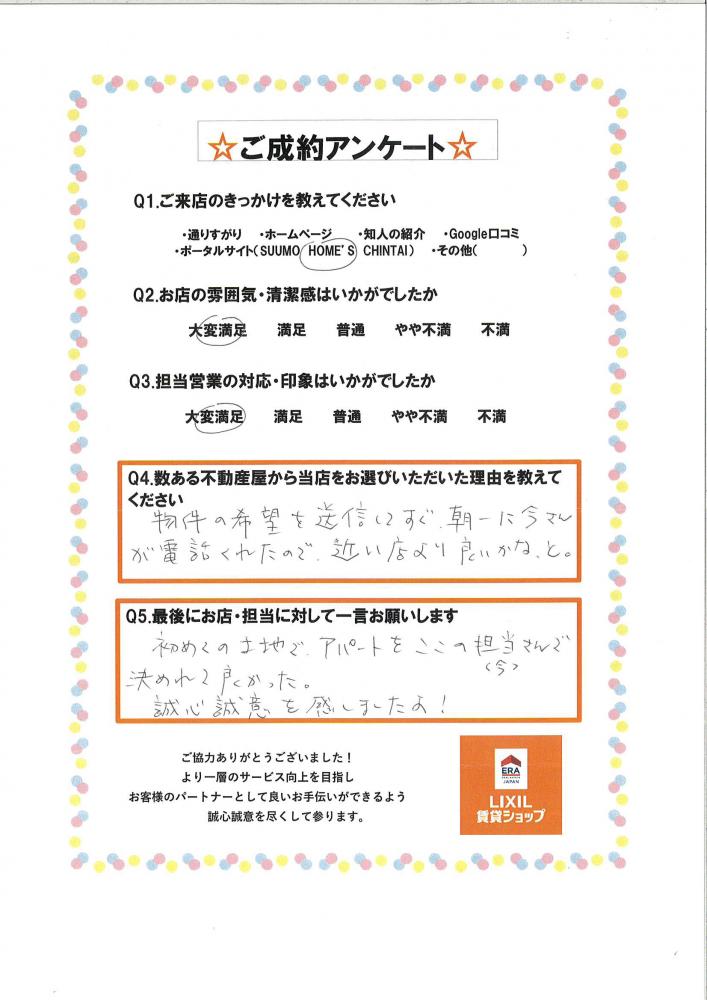 ☆ご成約アンケート☆
Q1.ご来店のきっかけを教えてください
・通りすがり ・ホームページ ・知人の紹介 ・Google口コミ
・ポータルサイト(SUUMO HOME'S CHINTAI) ・その他( )
Q2.お店の雰囲気・清潔感はいかがでしたか
大変満足 満足 普通 やや不満 不満
Q3.担当営業の対応・印象はいかがでしたか
大変満足 満足 普通 やや不満 不満
Q4.数ある不動産屋から当店をお選びいただいた理由を教えて
ください
物件の希望を送信してすぐ、朝一に今さん
が電話くれたので、近い店より良いかな、と。
Q5.最後にお店・担当に対して一言お願いします
初めての土地で、アパートをここの担当さんで
(今)
決めれて良かった。
誠心誠意を感じましたよ!
ご協力ありがとうございました!
より一層のサービス向上を目指し
お客様のパートナーとして良いお手伝いができるよう
誠心誠意を尽くして参ります。
ERA
JAPAN
LIXIL
賃貸ショップ